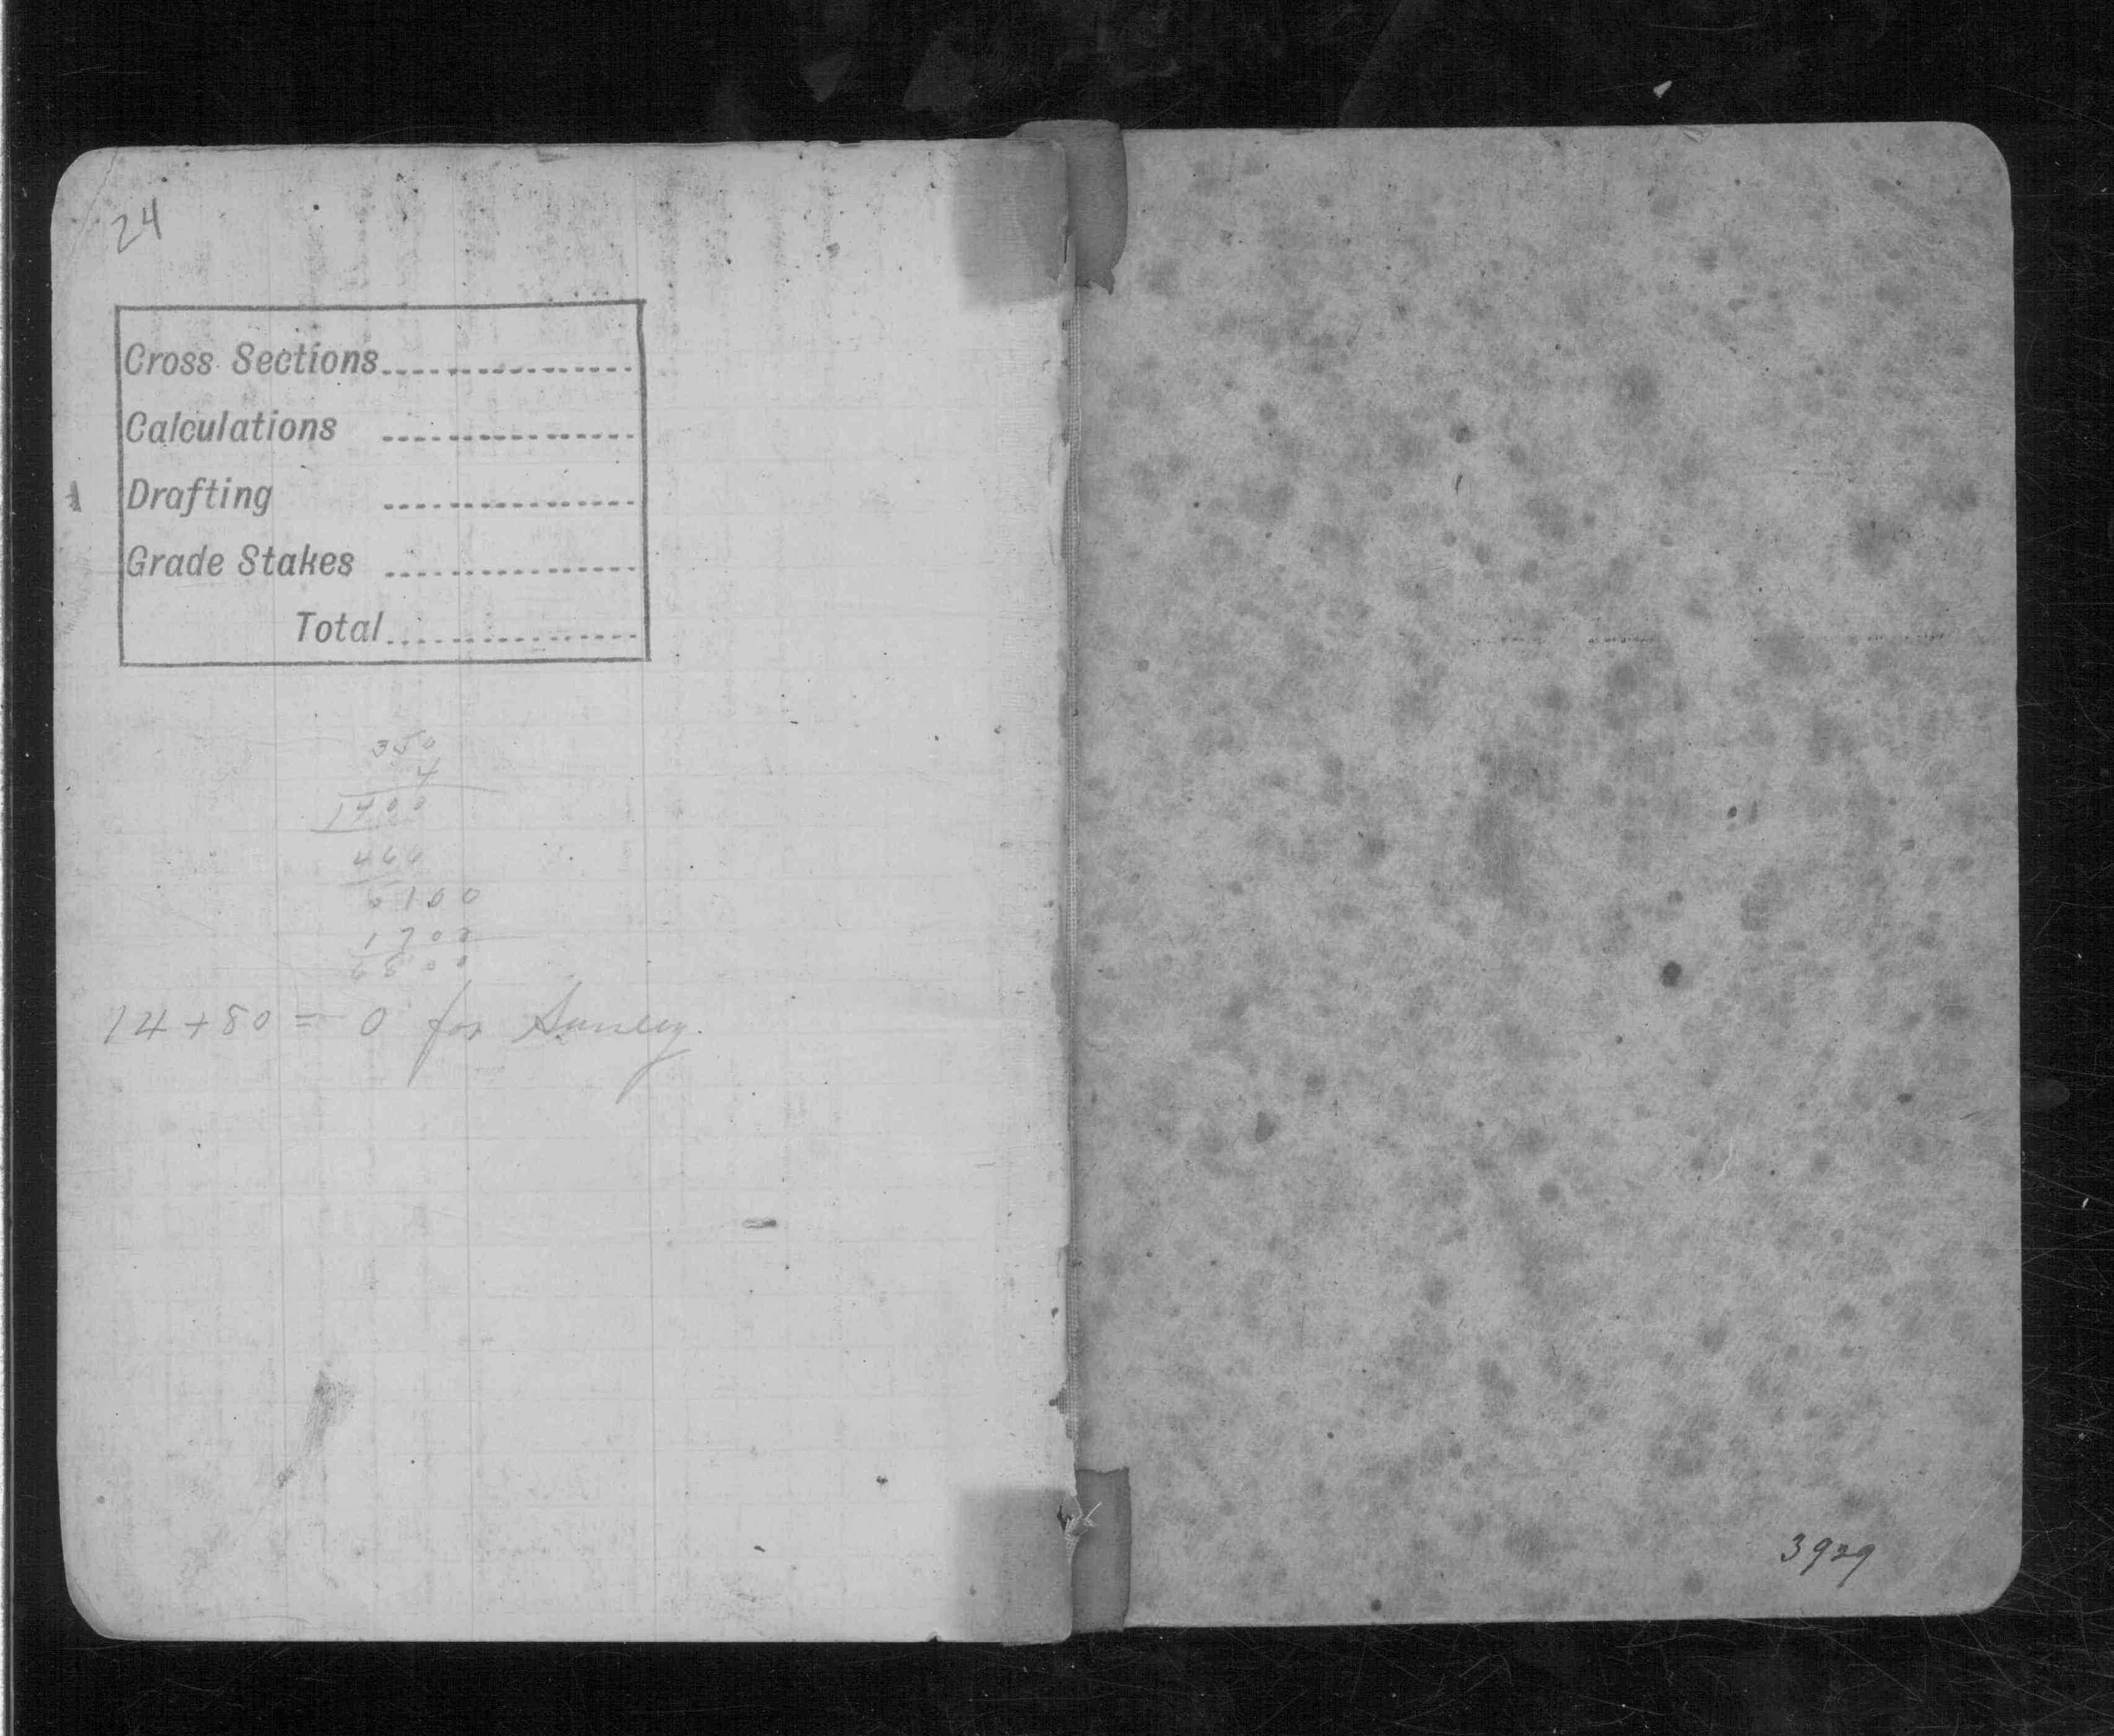 24
Cross Sections
Calculations
Drafting
Grade Stakes
Total
350
4
1400
100
1700
14+80 = 0 for Survey.
3929